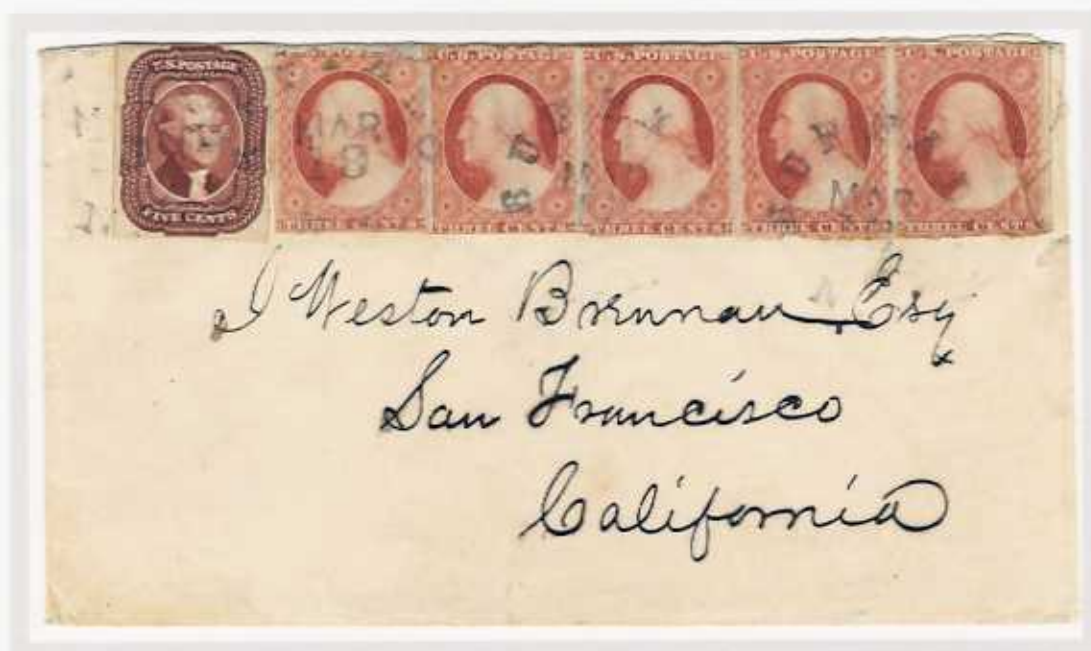 U.S. POSTAGE
FIVE CENTS
U.S. POSTAGE
THREE CENTS
U.S. POSTAGE
THREE CENTS
U.S. POSTAGE
THREE CENTS
U.S. POSTAGE
THREE CENTS
THREE CENTS
MAR
18
MAR
Weston Brennan Esq
San Francisco
California